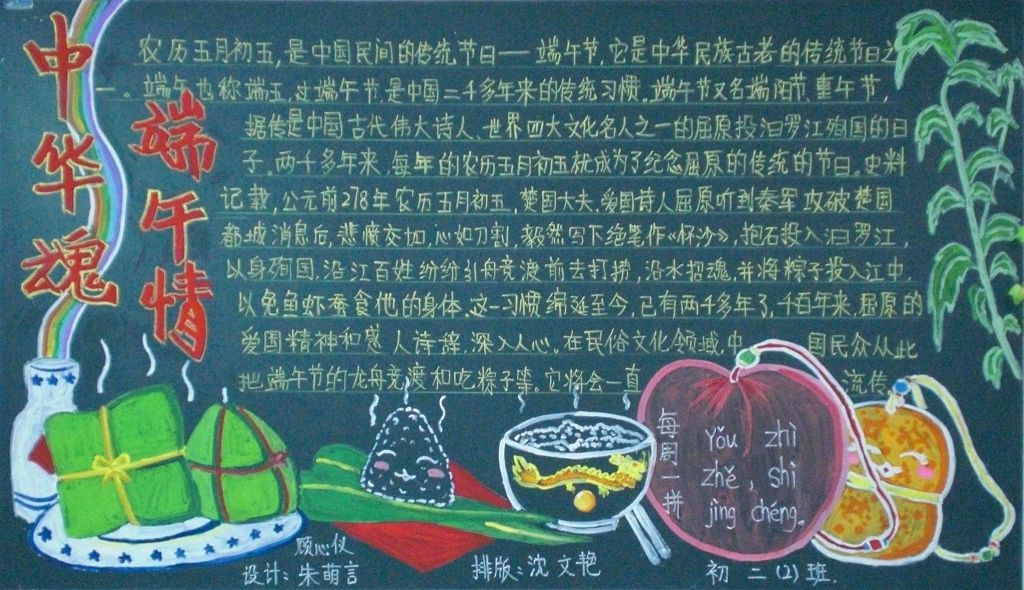 中华魂
端午情
农历五月初五,是中国民间的传统节日——端午节,它是中华民族古老的传统节日之
一。端午也称端五,过端午节,是中国二千多年来的传统习惯。端午节又名端阳节、重午节,
据传是中国古代伟大诗人、世界四大文化名人之一的屈原投汨罗江殉国的日
子。两千多年来,每年的农历五月初五就成为了纪念屈原的传统的节日。史料
记载,公元前278年农历五月初五,楚国大夫、爱国诗人屈原听到秦军攻破楚国
都城消息后,悲愤交加,心如刀割,毅然写下绝笔作《怀沙》,抱石投入汨罗江,
以身殉国。沿江百姓纷纷引舟竞渡前去打捞,沿水招魂,并将粽子投入江中,
以免鱼虾蚕食他的身体。这一习惯绵延至今,已有两千多年了,千百年来,屈原的
爱国精神和感人诗辞,深入人心。在民俗文化领域,中国民众从此
把端午节的龙舟竞渡和吃粽子等。它将会一直流传
每周一拼
Yǒu zhì
zhě, shì
jìng chéng。
顾心仪
设计:朱萌言
排版:沈文艳
初二(2)班.